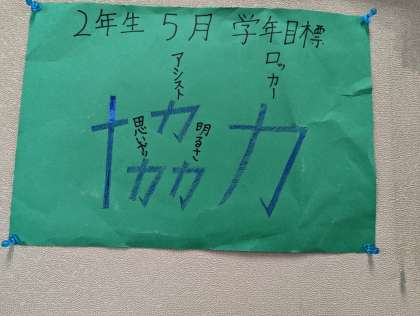 2年生 5月 学年目標
協力
アシスト
ロッカー
思いやり
明るさ